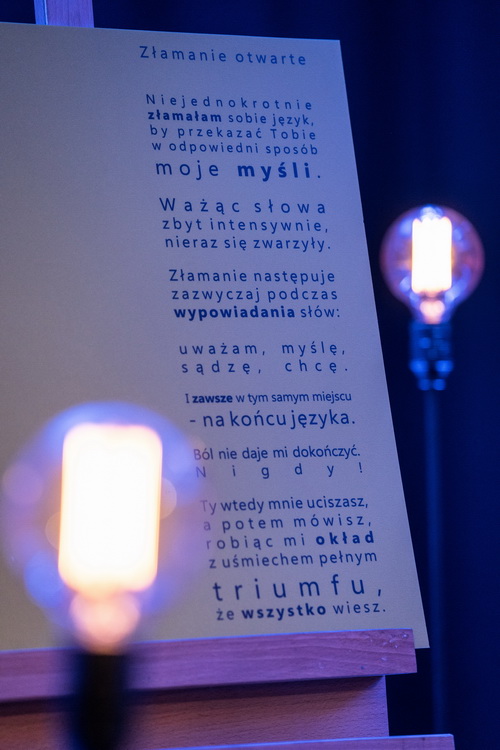 Złamanie otwarte
Niejednokrotnie
złamałam sobie język,
by przekazać Tobie
w odpowiedni sposób
moje myśli.
Ważąc słowa
zbyt intensywnie,
nieraz się zwarzyły.
Złamanie następuje
zazwyczaj podczas
wypowiadania słów:
uważam, myślę,
sądzę, chcę.
I zawsze w tym samym miejscu
- na końcu języka.
Ból nie daje mi dokończyć.
Nigdy!
Ty wtedy mnie uciszasz,
a potem mówisz,
robiąc mi okład
z uśmiechem pełnym
triumfu,
że wszystko wiesz.